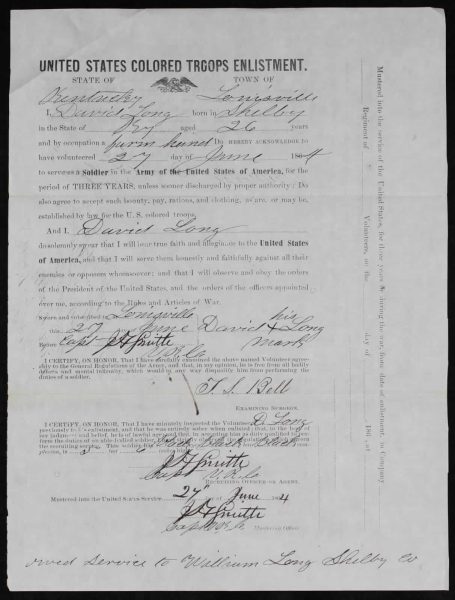 UNITED STATES COLORED TROOPS ENLISTMENT.
STATE OF TOWN OF
Kentucky Louisville
I, David Long born in Shelby
in the State of Ky aged 26 years
and by occupation a farm hand Do HEREBY ACKNOWLEDGE to
have volunteered 27 day of June 1864
to serve as a Soldier in the Army of the United States of America, for the
period of THREE YEARS, unless sooner discharged by proper authority: Do
also agree to accept such bounty, pay, rations, and clothing, as are, or may be,
established by law for the U. S. colored troops.
And I David Long
do solemnly swear that I will bear true faith and allegiance to the United States
of America, and that I will serve them honestly and faithfully against all their
enemies or opposers whomsoever; and that I will observe and obey the orders
of the President of the United States, and the orders of the officers appointed
over me, according to the Rules and Articles of War.
Sworn and subscribed to Louisville his
this 27 June David X Long
Before Capt mark
I CERTIFY, ON HONOR, That I have carefully examined the above named Volunteer agree-
ably to the General Regulations of the Army, and that, in my opinion, he is free from all bodily
defects and mental infirmity, which would in any way disqualify him from performing the
duties of a soldier.
T. S. Bell
EXAMINING SURGEON.
I CERTIFY, ON HONOR, That I have minutely inspected the Volunteer D. Long
previously to his enlistment, and that he was entirely sober when enlisted; that, to the best of
my judgment and belief, he is of lawful age; and that, in accepting him as duty qualified to per-
form the duties of an able-bodied soldier,
is 5
RECRUITING OFFICER OR AGENT.
Mustered into the United States Service 27" June 1864
Capt
Mustering Officer
owed service to William Long Shelby Co
Mustered into the service of the United States, for three years or during the war from date of enlistment, in Company
Regiment of Volunteers, on the day of 186 , at